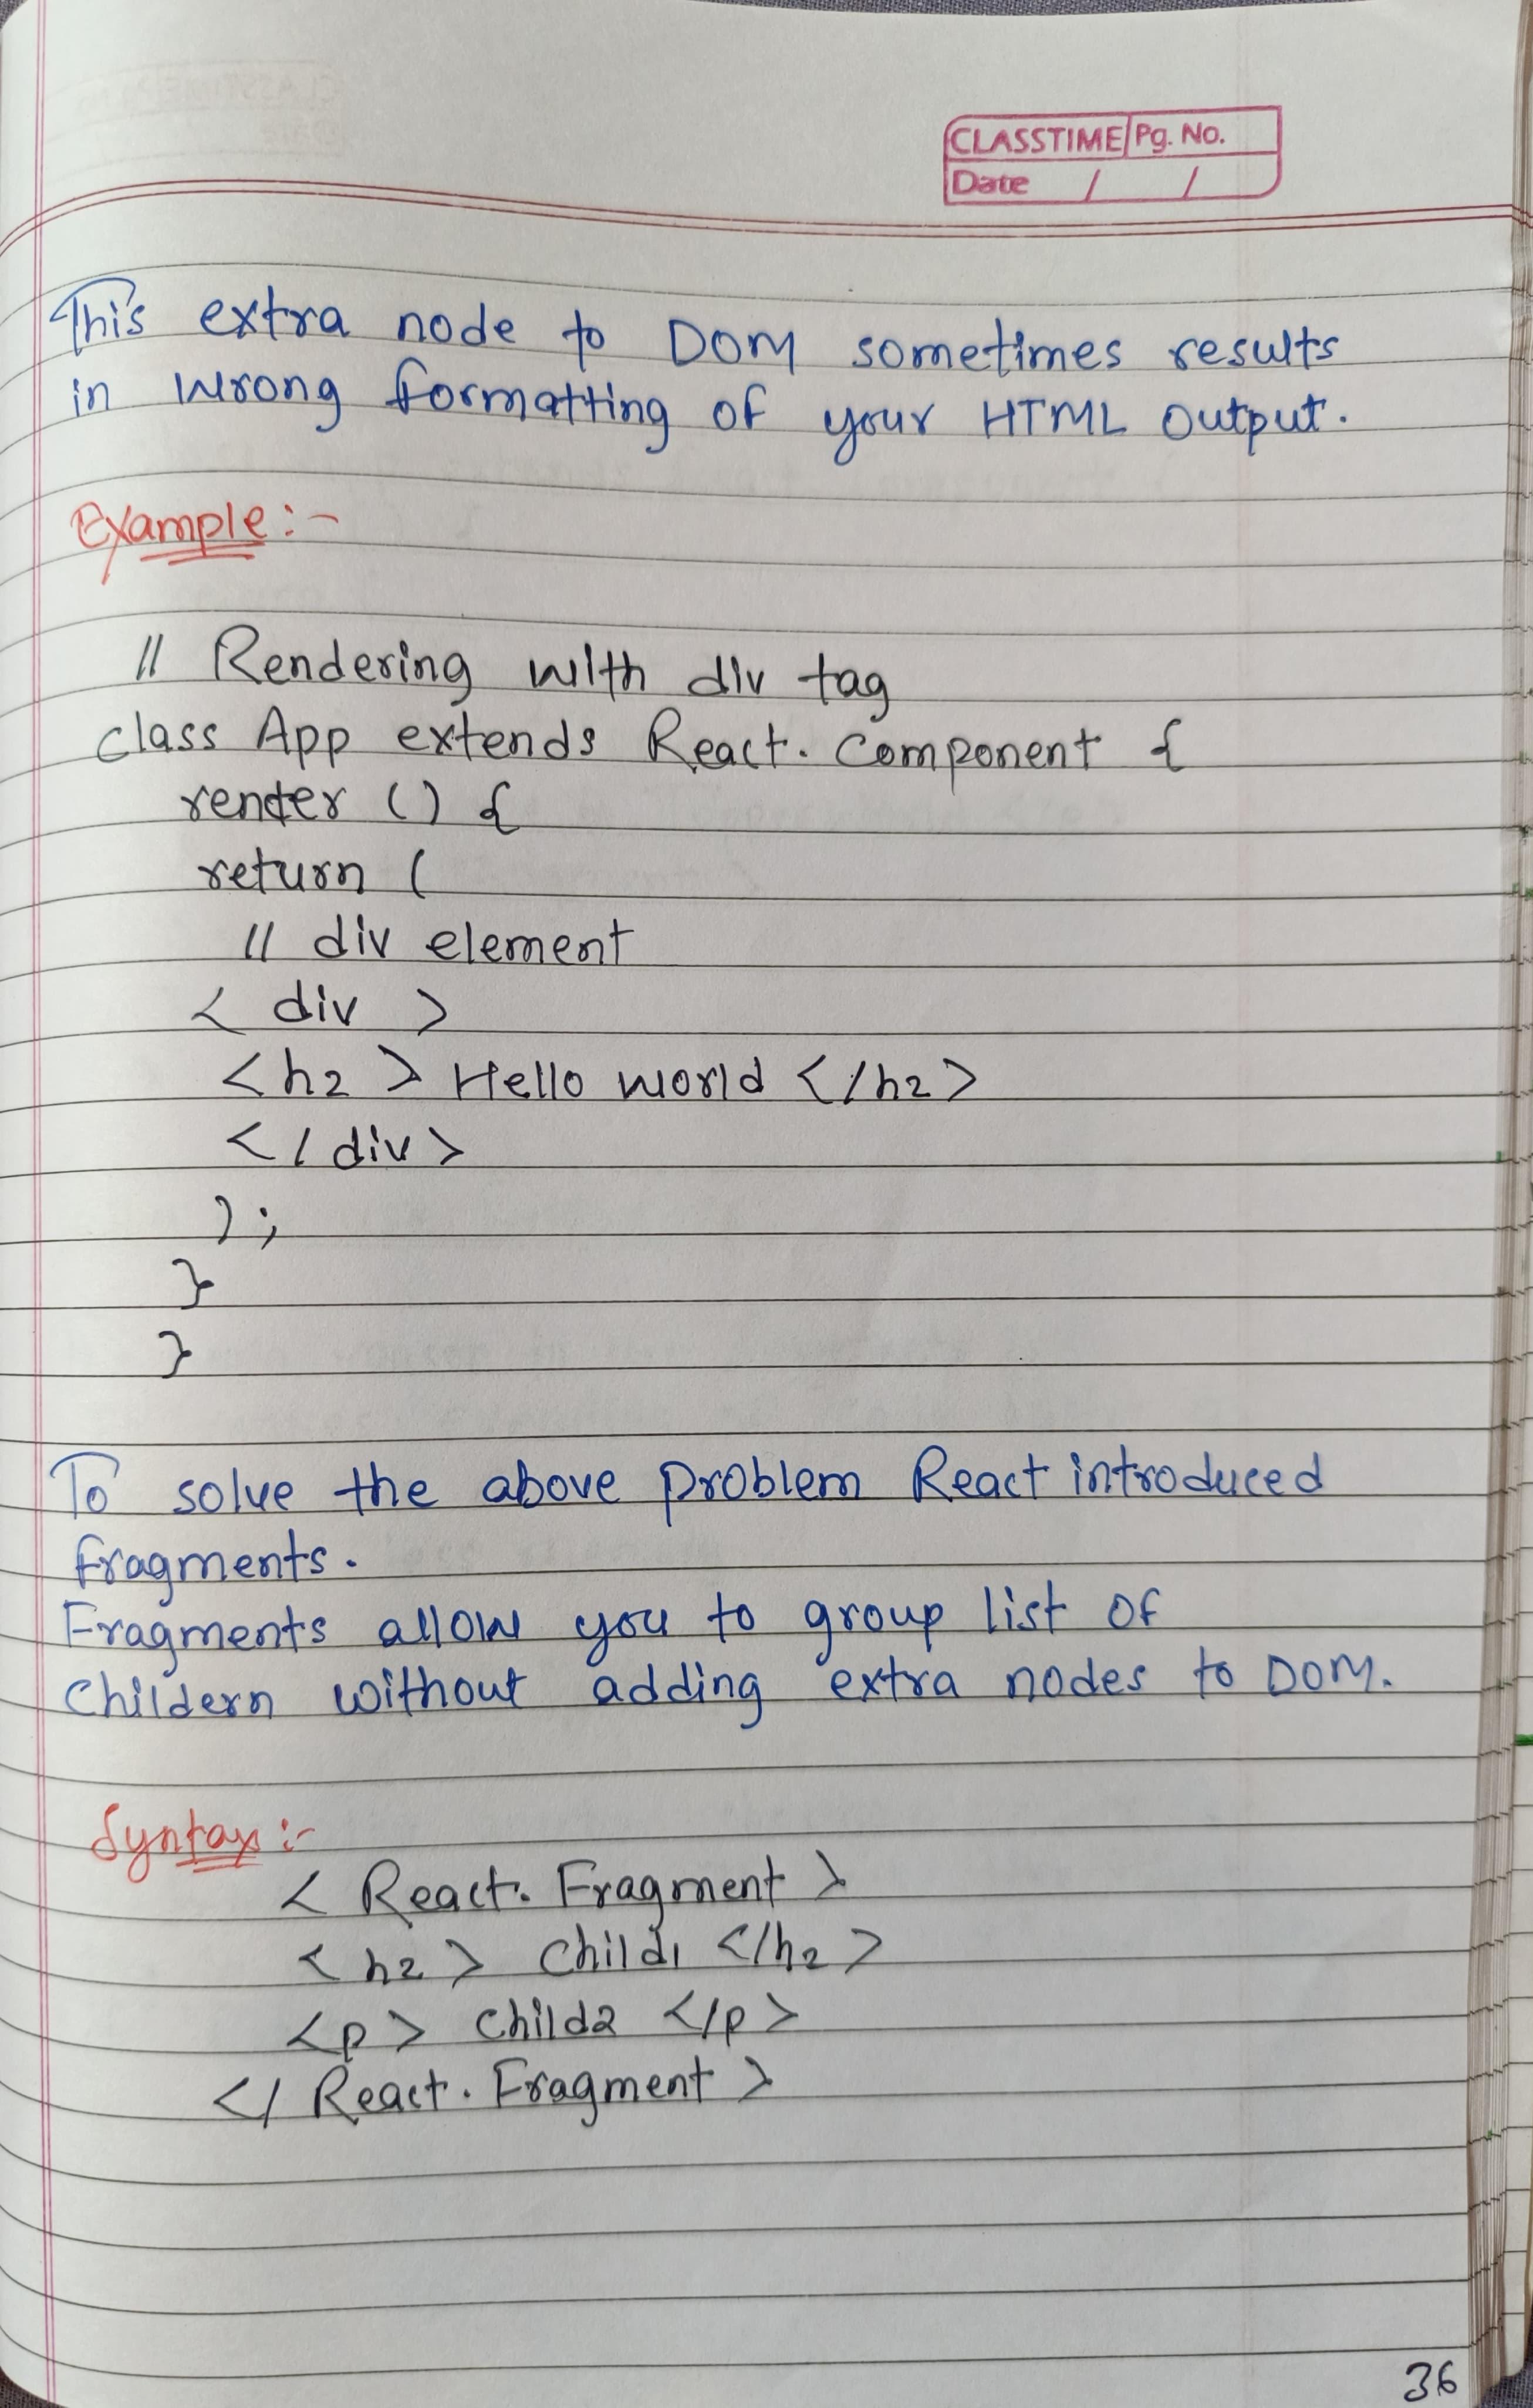 CLASSTIME Pg. No.
Date / /
This extra node to DOM sometimes results
in wrong formatting of your HTML output.
Example:-
// Rendering with div tag
class App extends React. Component {
render () {
return (
// div element
< div >
<h2 > Hello world </h2>
</div>
);
}
}
To solve the above problem React introduced
fragments.
Fragments allow you to group list of
Childern without adding extra nodes to DOM.
Syntax:-
< React. Fragment >
<h2> Child1 </h2>
<p> Child2 </p>
</ React. Fragment >
36